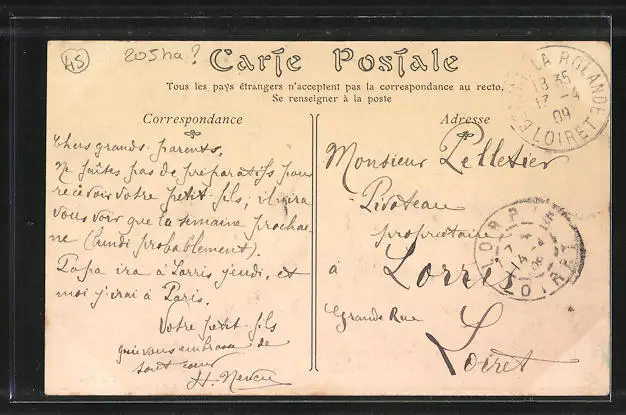 45
Carte Postale
Tous les pays étrangers n'acceptent pas la correspondance au recto.
Se renseigner à la poste
Correspondance
Adresse
Chers grands-parents,
Ne faites pas de préparatifs pour
recevoir votre petit-fils, il ira
vous voir que la semaine prochai-
ne (lundi probablement).
Papa ira à Lorris jeudi, et
moi j'irai à Paris.
Votre petit-fils
qui vous embrasse de
tout cœur
H.
Monsieur Pelletier
Pivoteau
propriétaire
à Lorris
Grande Rue
Loiret
LA ROLANDE
18 35
17 -4
09
LOIRET
LORRIS
LOIRET